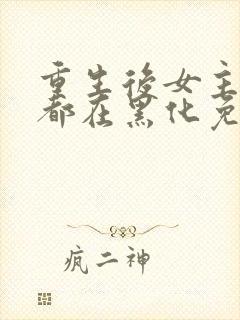 重生後女主
都在黑化免
疯二神